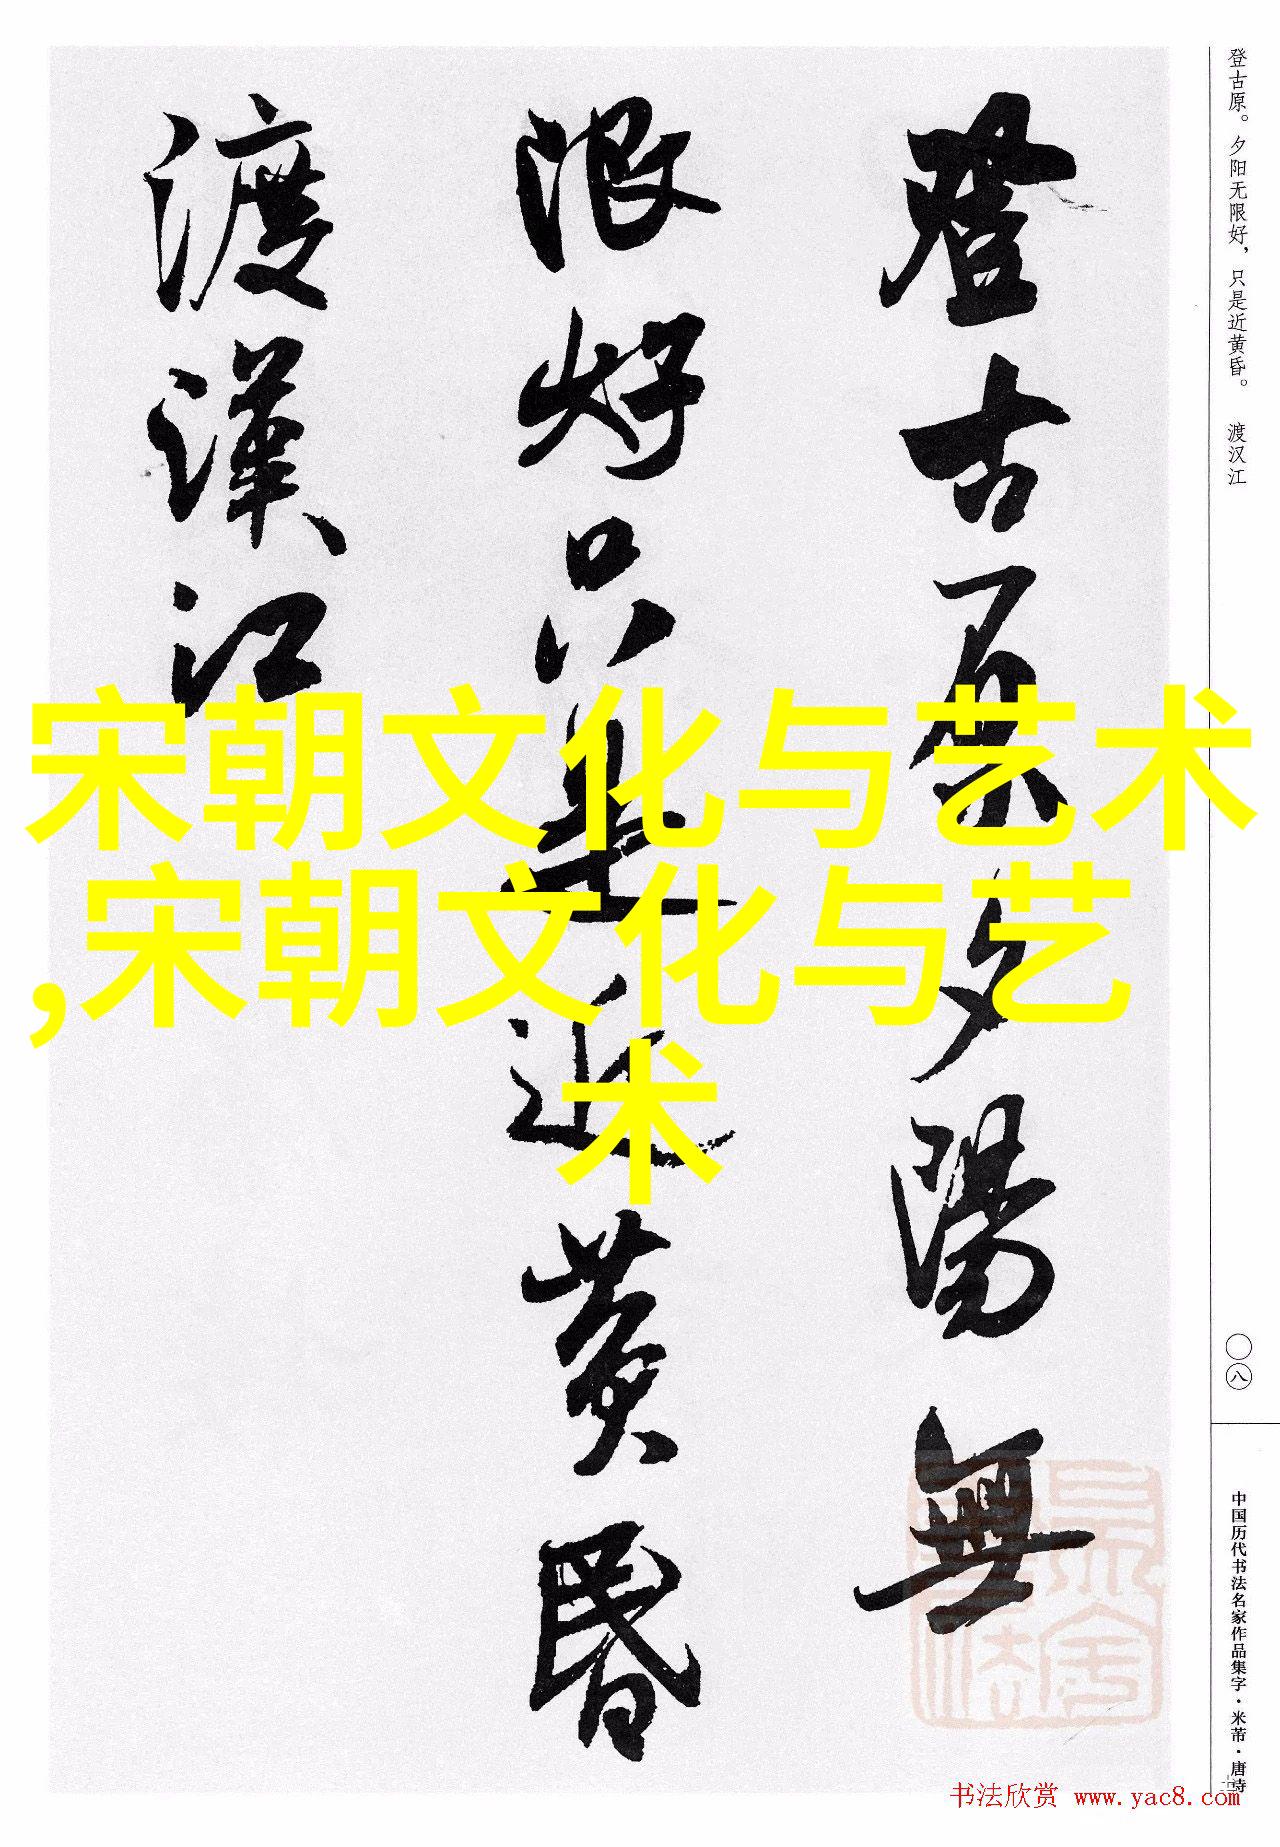 登古原。夕阳无限好，只是近黄昏。 渡汉江
登古原夕陽無
限好只是近黄昏
渡漢江
宋朝文化与艺术
,宋朝文化与艺
术
〇八
中国历代书法名家作品集字·米芾·唐诗
书法欣赏 www.yac8.com